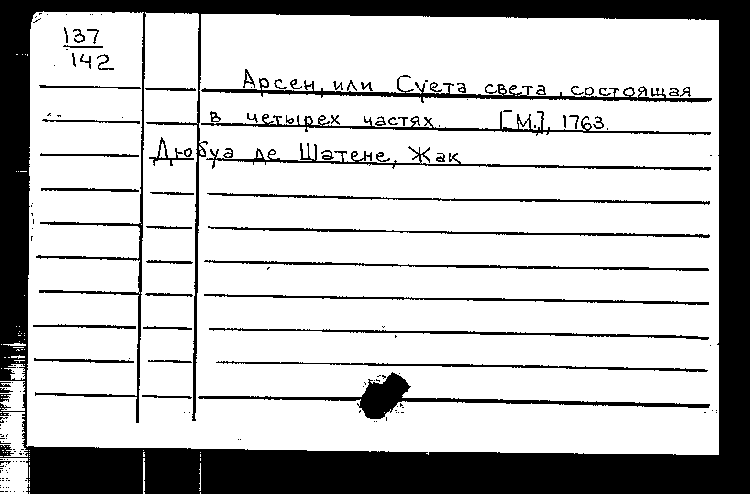 137
142
Арсен, или Суета света, состоящая
в четырех частях. [М.], 1763.
Дюбуа де Шатене, Жак